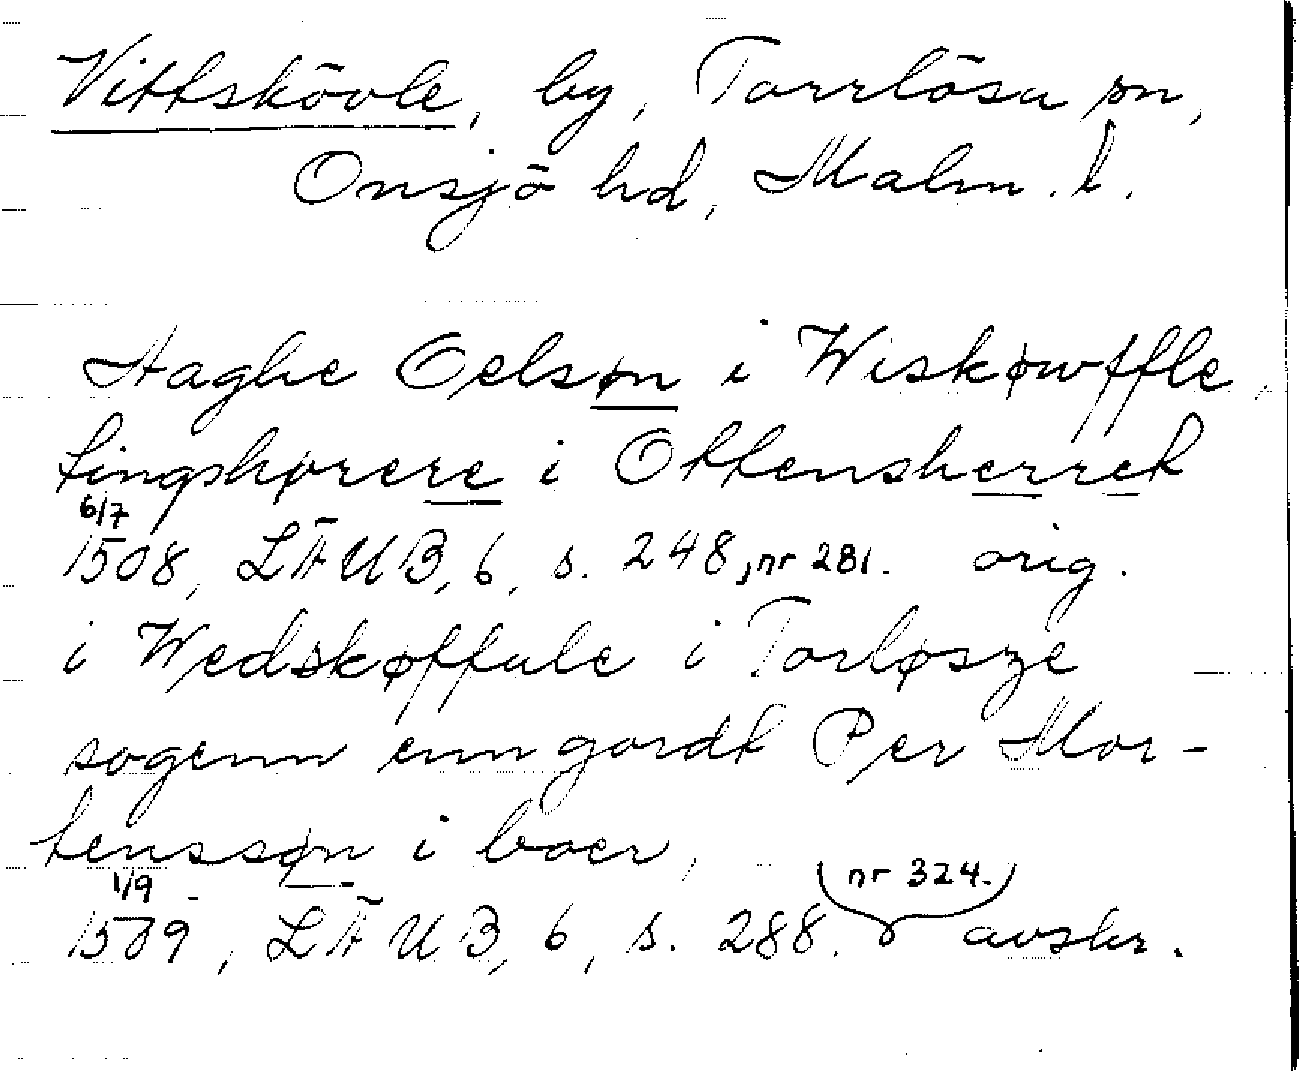 Vittskövle, by, Torrlösa sn,
Onsjö hd, Malm. l.
Haghe Oelsøn i Wiskøwffle,
tingshørere i Ottensherret
6/7
1508, LÄUB, 6, s. 248, nr 281. orig.
i Wedskøffule i Torløsze
sogenn enn gordt Per Mor-
tenssøn i boer,
1/9
1509, LÄUB, 6, s. 288. nr 324. avskr.